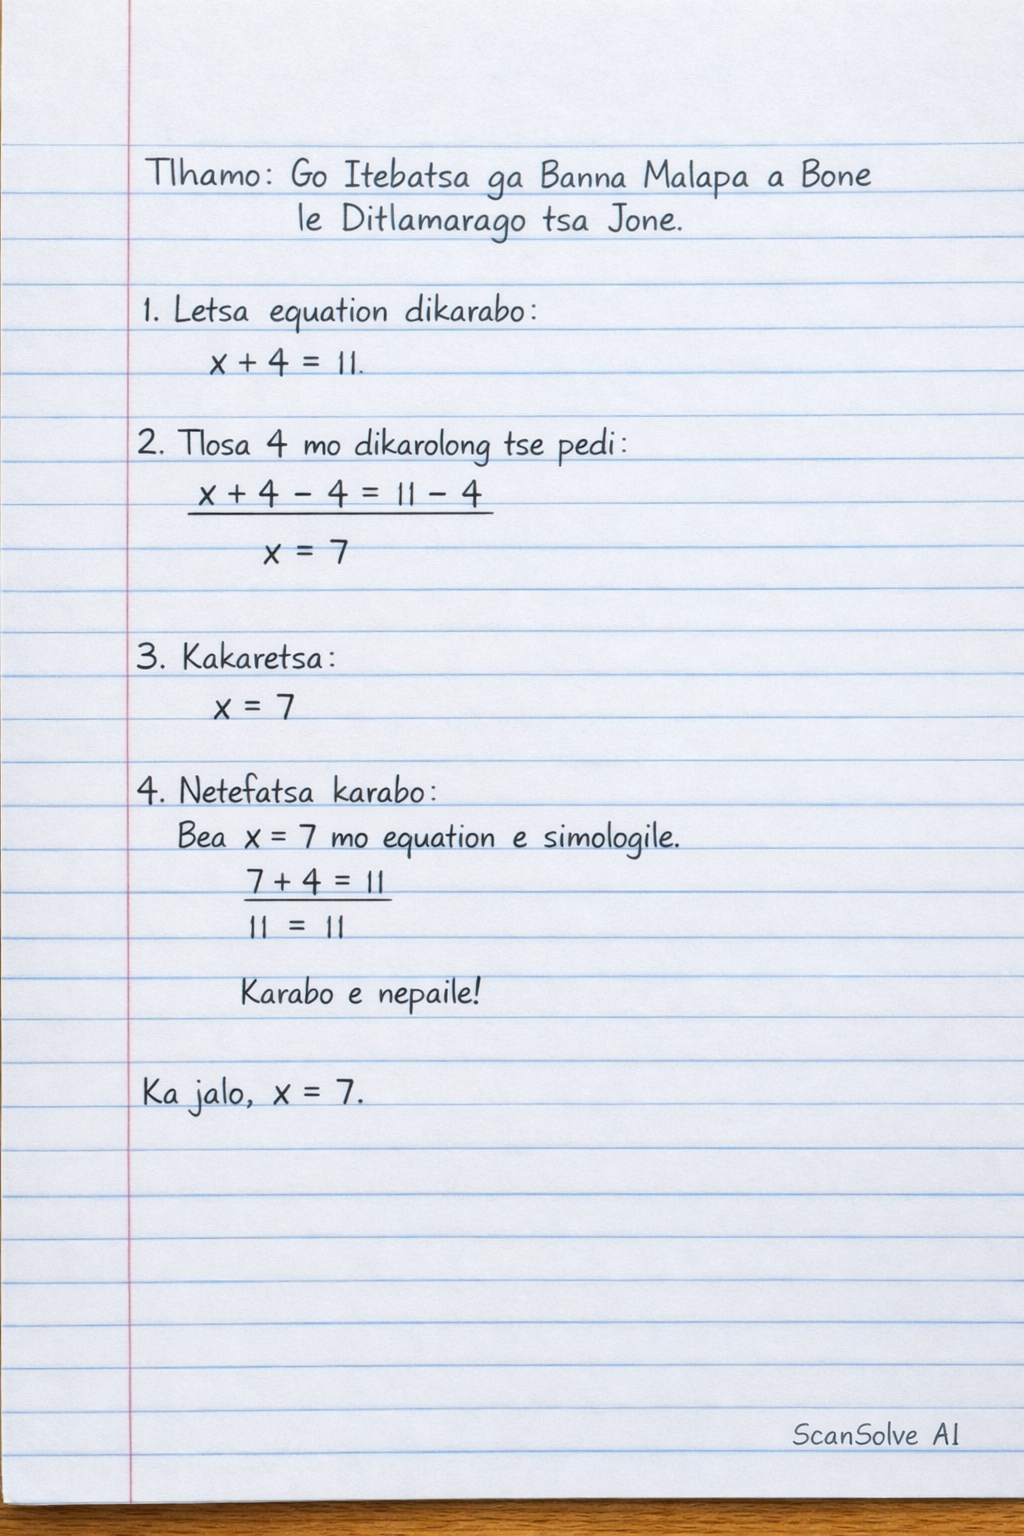 Tlhamo: Go Itebatsa ga Banna Malapa a Bone
le Ditlamarago tsa Jone.
1. Letsa equation dikarabo:
x + 4 = 11.
2. Tlosa 4 mo dikarolong tse pedi:
x + 4 - 4 = 11 - 4
x = 7
3. Kakaretsa:
x = 7
4. Netefatsa karabo:
Bea x = 7 mo equation e simologile.
7 + 4 = 11
11 = 11
Karabo e nepaile!
Ka jalo, x = 7.
ScanSolve AI